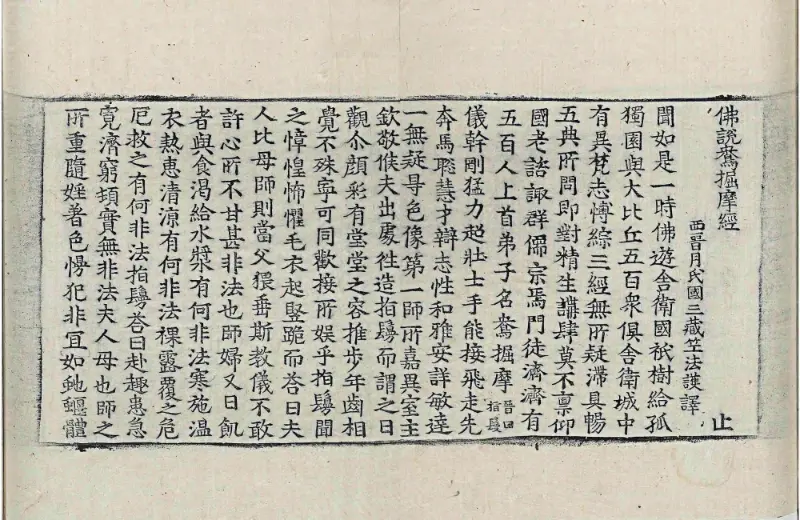 佛說鴦掘摩經 止
西晉月氏國三藏竺法護譯
聞如是一時佛遊舍衛國祇樹給孤
獨園與大比丘五百衆俱舍衛城中
有異梵志博綜三經無所疑滯具暢
五典所問即對精生講肆莫不禀仰
國老諮諏群儒宗焉門徒濟濟有
五百人上首弟子名鴦掘摩 晉曰指鬘
儀幹剛猛力超壯士手能接飛走先
奔馬聰慧才辯志性和雅安詳敏達
一無疑㝵色像第一師所嘉異室主
欽敬候夫出處徃造指鬘而謂之曰
觀尒顏彩有堂堂之容推步年齒相
覺不殊寧可同歡接所娛乎指鬘聞
之慞惶怖懼毛衣起竪跪而荅曰夫
人比母師則當父猥垂斯教儀不敢
許心所不甘甚非法也師婦又曰飢
者與食渴給水漿有何非法寒施溫
衣熱惠清涼有何非法裸露覆之危
厄救之有何非法指鬘荅曰赴趣患急
寬濟窮頓實無非法夫人母也師之
所重隨婬著色慢犯非宜如虵蝘體